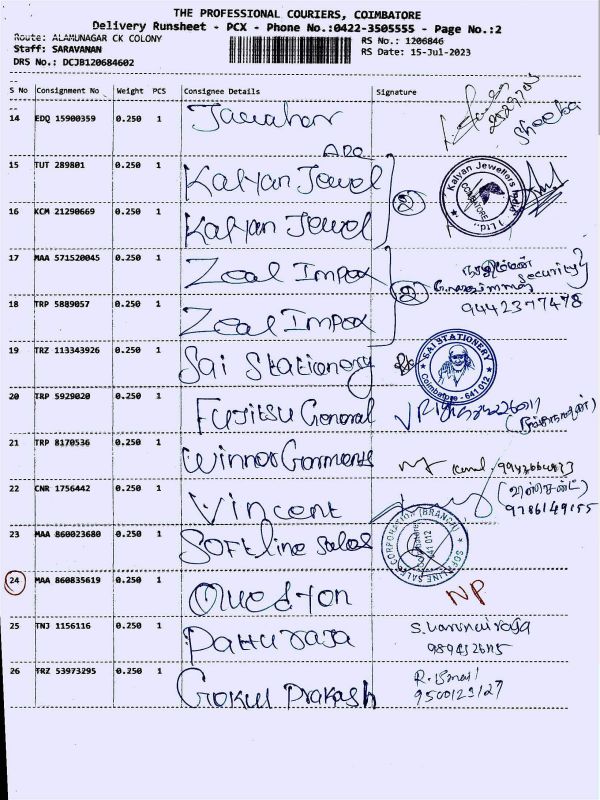 THE PROFESSIONAL COURIERS, COIMBATORE
Delivery Runsheet - PCX - Phone No.:0422-3505555 - Page No.:2
Route: ALAMUNAGAR CK COLONY
RS No.: 1206846
Staff: SARAVANAN
RS Date: 15-Jul-2023
DRS No.: DCJB120684602
S No Consignment No Weight PCS Consignee Details Signature
14 EDQ 15900359 0.250 1 Jawahar
Sheeba
15 TUT 289801 0.250 1 Kalyan Jewel
Kalyan Jewellers India Ltd., COIMBATORE
16 KCM 21290669 0.250 1 Kalyan Jewel
17 MAA 571520045 0.250 1 Zeal Impex
Security
9442377478
18 TRP 5889057 0.250 1 Zeal Impex
19 TRZ 113343926 0.250 1 Sai Stationery
SAI STATIONERY Coimbatore - 641 012
20 TRP 5929020 0.250 1 Fujitsu General
21 TRP 8170536 0.250 1 Winner Garments
22 CNR 1756442 0.250 1 Vincent
(வின்சென்ட்)
9786149155
23 MAA 860023680 0.250 1 Softline Sales
SOFTLINE SALES CORPORATION (BRANCH) Coimbatore 641 012
24 MAA 860835619 0.250 1 Queston NP
25 TNJ 1156116 0.250 1 Pattu raja
26 TRZ 53973295 0.250 1 Gokul Prakash
R. Ismail
9500129127